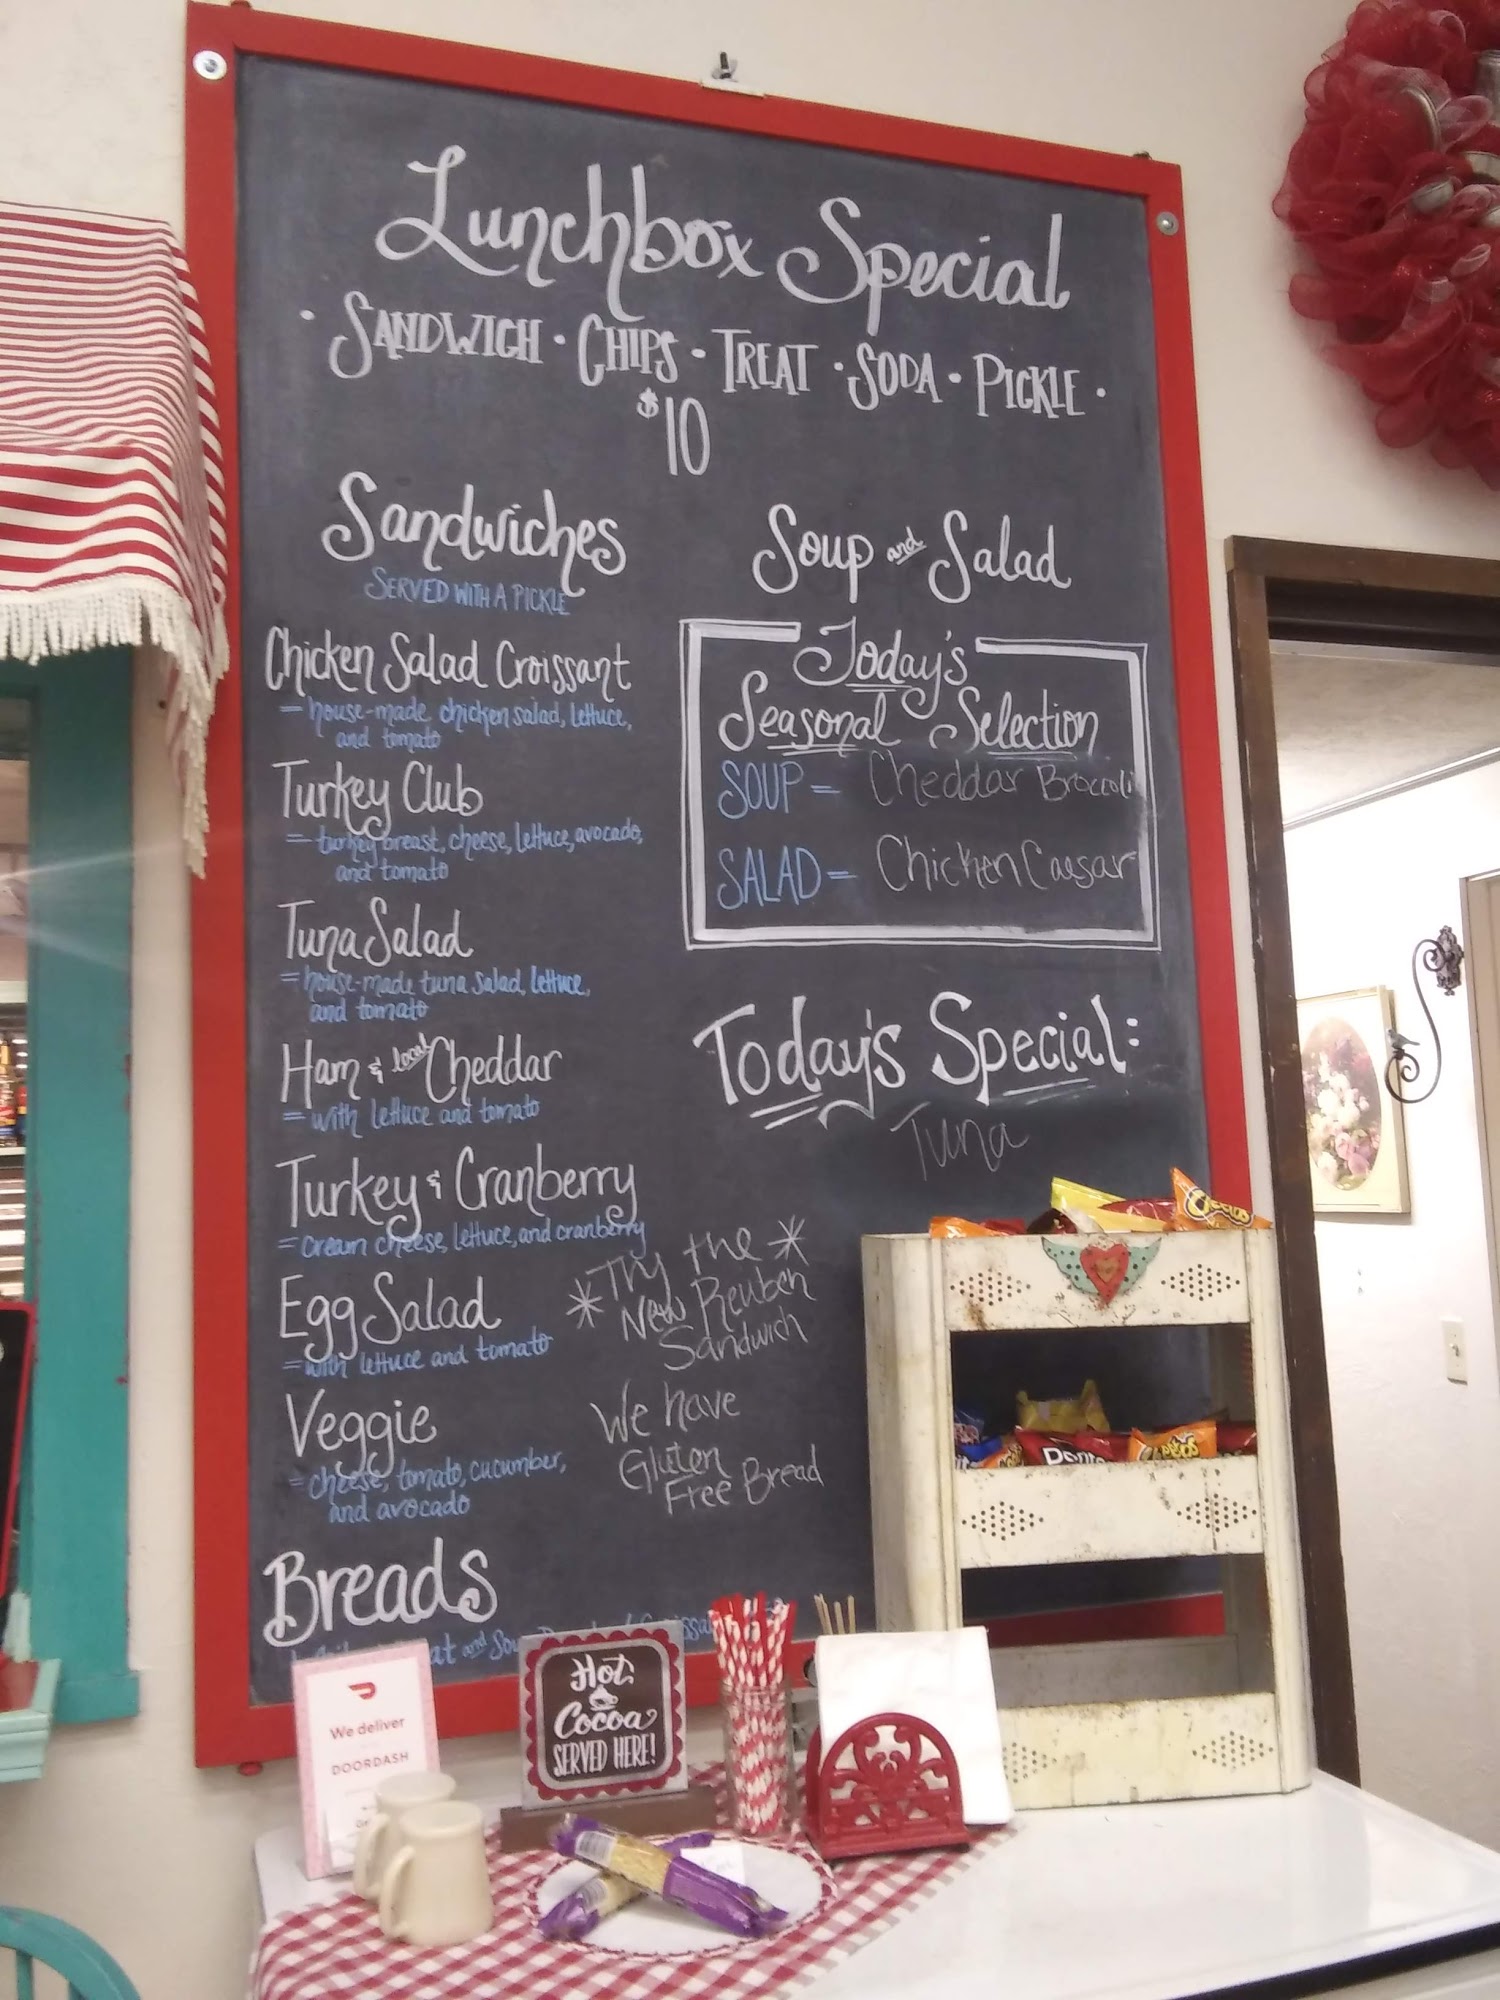 Lunchbox Special
· Sandwich · Chips · Treat · Soda · Pickle ·
$10
Sandwiches
Served with a Pickle
Chicken Salad Croissant
= house-made chicken salad, lettuce,
and tomato
Turkey Club
= turkey breast, cheese, lettuce, avocado,
and tomato
Tuna Salad
= house-made tuna salad, lettuce,
and tomato
Ham & local Cheddar
= with lettuce and tomato
Turkey & Cranberry
= cream cheese, lettuce, and cranberry
Egg Salad
= with lettuce and tomato
Veggie
= cheese, tomato, cucumber,
and avocado
Breads
and
Soup and Salad
Today's
Seasonal Selection
SOUP = Cheddar Broccoli
SALAD = Chicken Caesar
Today's Special:
Tuna
*Try the*
New Reuben
Sandwich
We have
Gluten
Free Bread
Cheetos
Cheetos
We deliver
DOORDASH
Hot
Cocoa
SERVED HERE!